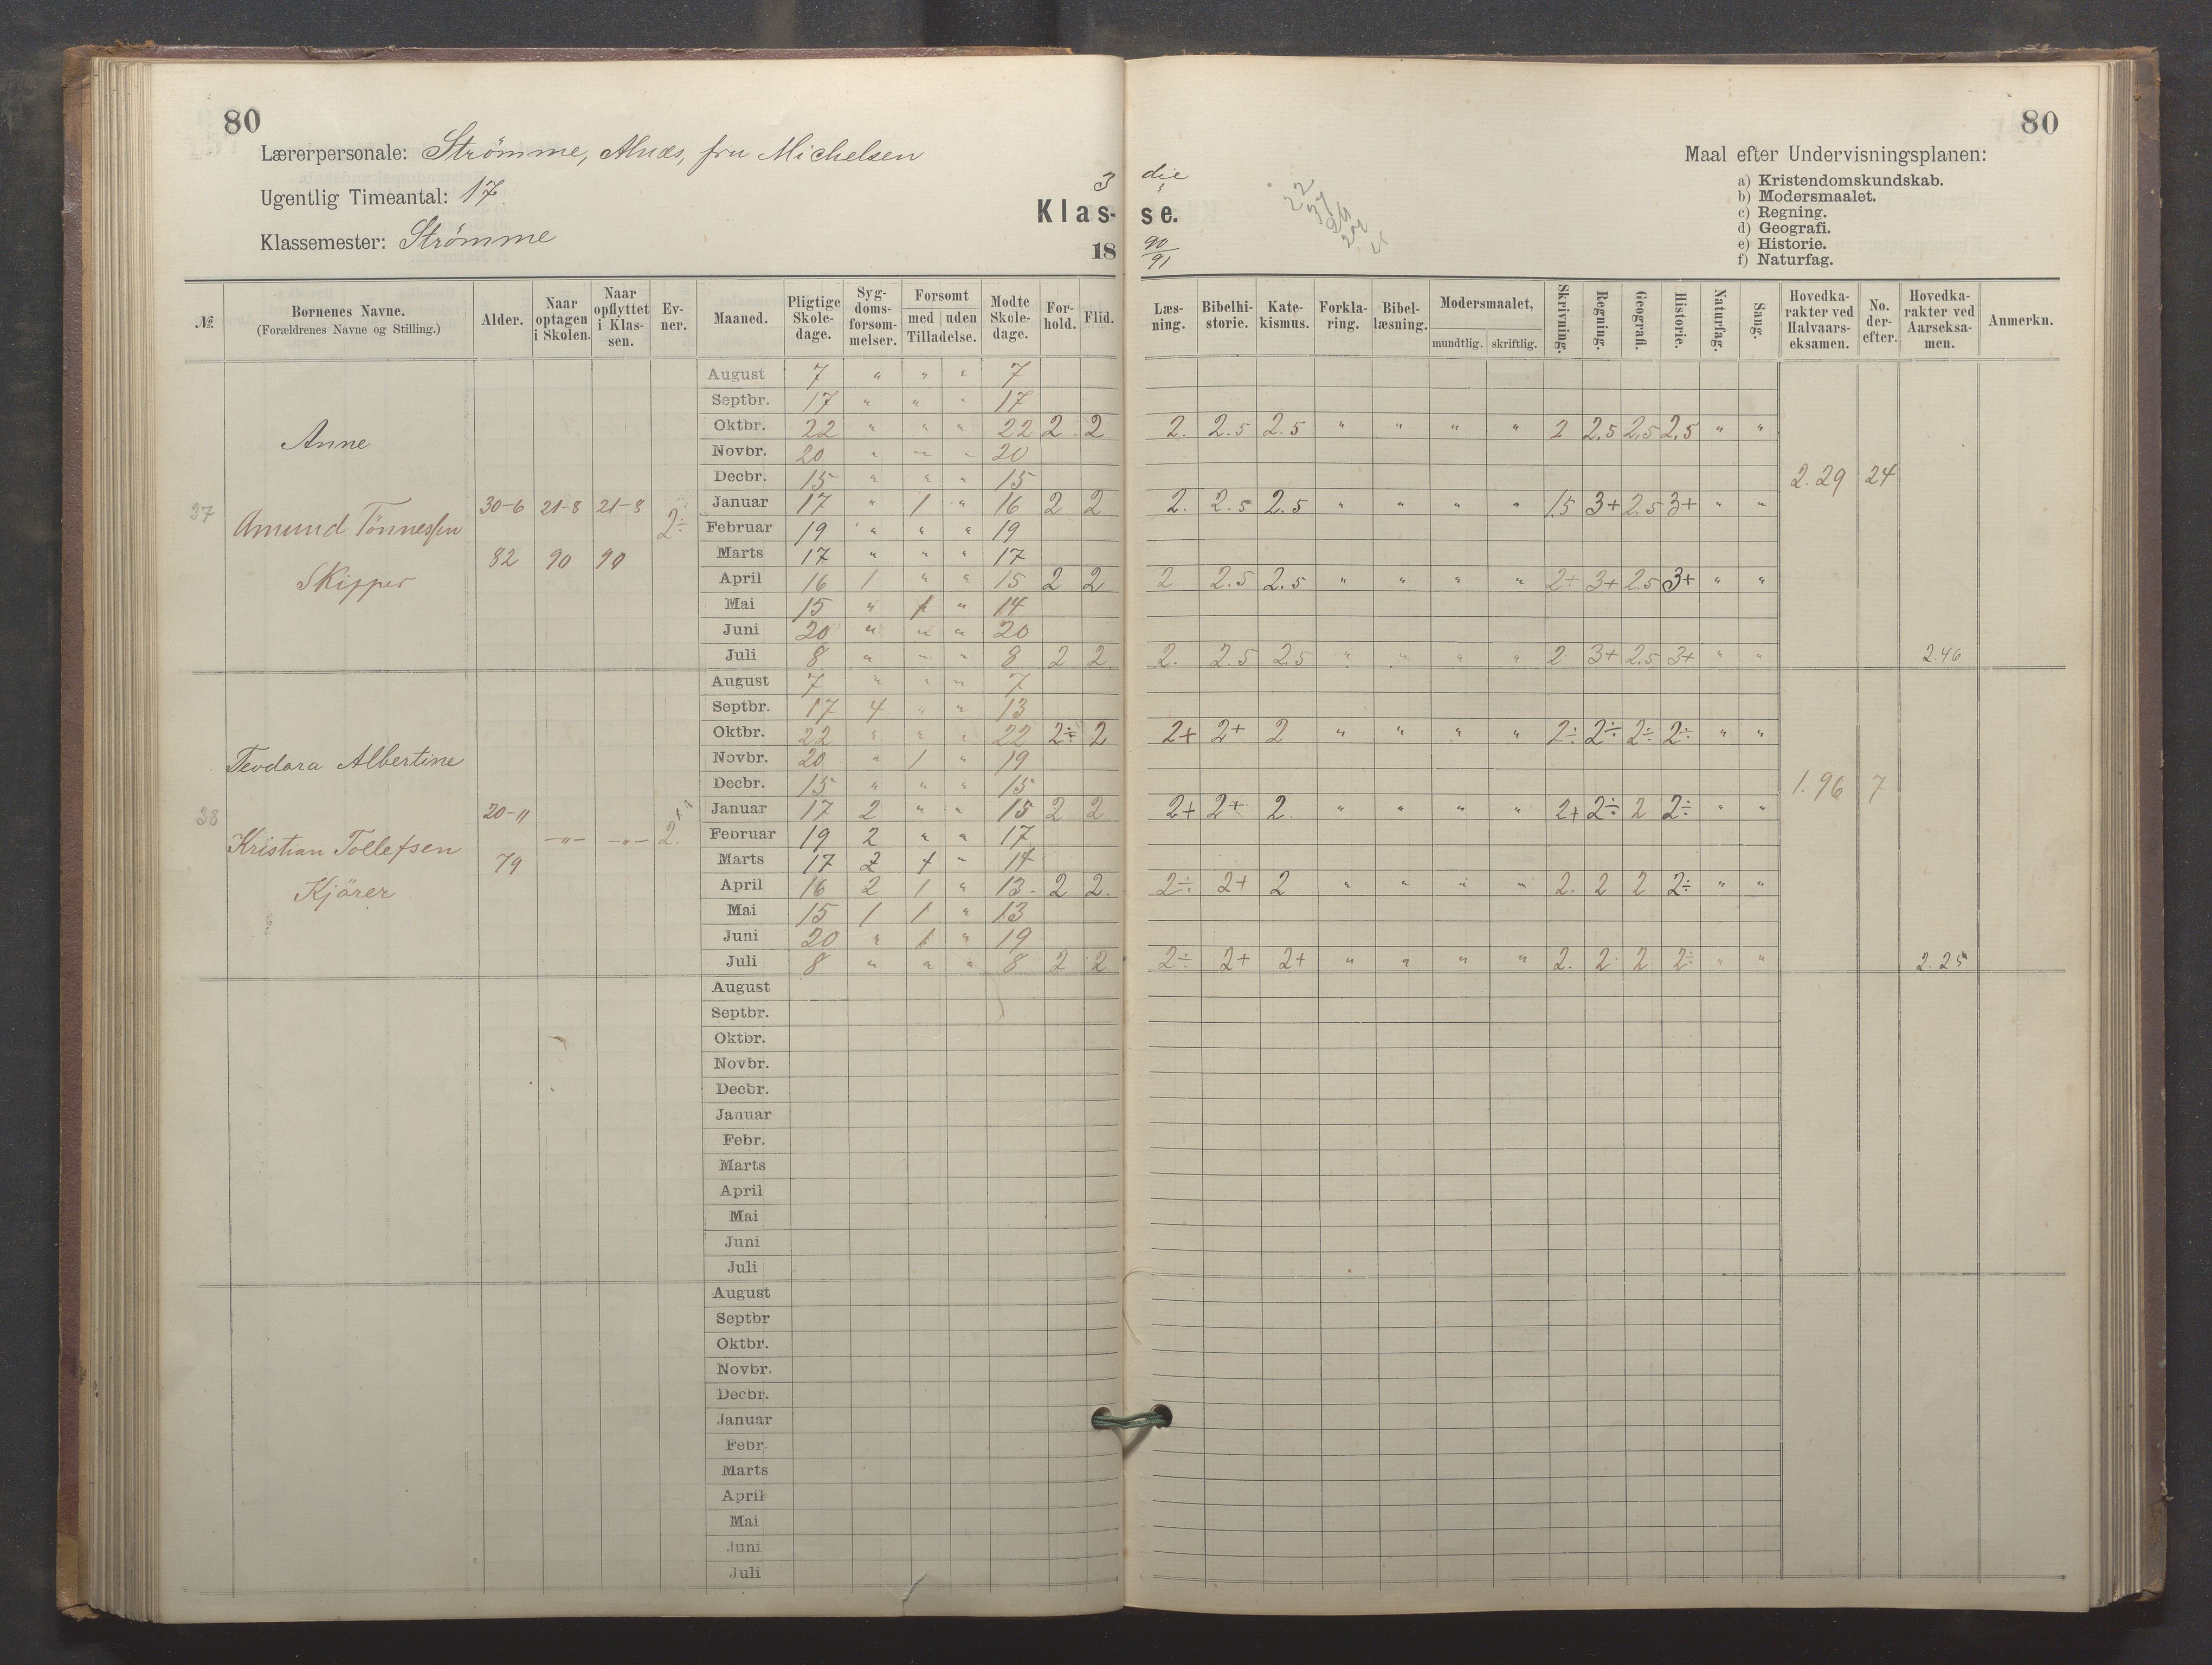 80
80
Lærerpersonale: Strömme, Alnæs, fru Michelsen
Ugentlig Timeantal: 17
Klassemester: Strömme
3 die
Klas- se.
18 90/91
Maal efter Undervisningsplanen:
a) Kristendomskundskab.
b) Modersmaalet.
c) Regning.
d) Geografi.
e) Historie.
f) Naturfag.
№ Børnenes Navne. (Forældrenes Navne og Stilling.) Alder. Naar optagen i Skolen. Naar opflyttet i Klassen. Evner. Maaned. Pligtige Skoledage. Sygdomsforsømmelser. Forsømt med uden Tilladelse. Mødte Skoledage. Forhold. Flid. Læsning. Bibelhistorie. Katekismus. Forklaring. Bibellæsning. Modersmaalet, mundtlig. skriftlig. Skrivning. Regning. Geografi. Historie. Naturfag. Sang. Hovedkarakter ved Halvaarseksamen. No. derefter. Hovedkarakter ved Aarseksamen. Anmerkn.
37
Anne
Amund Tönnessen
Skipper
30-6 82
21-8 90
21-8 90
2÷
August 7 " " " 7
Septbr. 17 " " " 17
Oktbr. 22 " " " 22 2 2 2. 2.5 2.5 " " " " 2 2.5 2.5 2.5 " "
Novbr. 20 " " " 20
Decbr. 15 " " " 15 2.29 24
Januar 17 " 1 " 16 2 2 2. 2.5 2.5 " " " " 1.5 3+ 2.5 3+ " "
Februar 19 " " " 19
Marts 17 " " " 17
April 16 1 " " 15 2 2 2 2.5 2.5 " " " " 2+ 3+ 2.5 3+ " "
Mai 15 " 1 " 14
Juni 20 " " " 20
Juli 8 " " " 8 2 2 2. 2.5 2.5 " " " " 2 3+ 2.5 3+ " " 2.46
38
Teodora Albertine
Kristian Tollefsen
Kjörer
20-11 79
-"- -"- 2.
August 7 " " " 7
Septbr. 17 4 " " 13
Oktbr. 22 " " " 22 2÷ 2 2+ 2+ 2 " " " " 2÷ 2÷ 2÷ 2÷ " "
Novbr. 20 " 1 " 19
Decbr. 15 " " " 15 1.96 7
Januar 17 2 " " 15 2 2 2+ 2+ 2. " " " " 2+ 2÷ 2 2÷ " "
Februar 19 2 " " 17
Marts 17 2 1 " 14
April 16 2 1 " 13. 2 2. 2÷ 2+ 2 " " " " 2. 2 2 2÷ " "
Mai 15 1 1 " 13
Juni 20 " 1 " 19
Juli 8 " " " 8 2 2 2÷ 2+ 2+ " " " " 2. 2 2 2÷ " " 2.25
August
Septbr.
Oktbr.
Novbr.
Decbr.
Januar
Febr.
Marts
April
Mai
Juni
Juli
August
Septbr
Oktbr.
Novbr.
Decbr.
Januar
Febr.
Marts
April
Mai
Juni
Juli